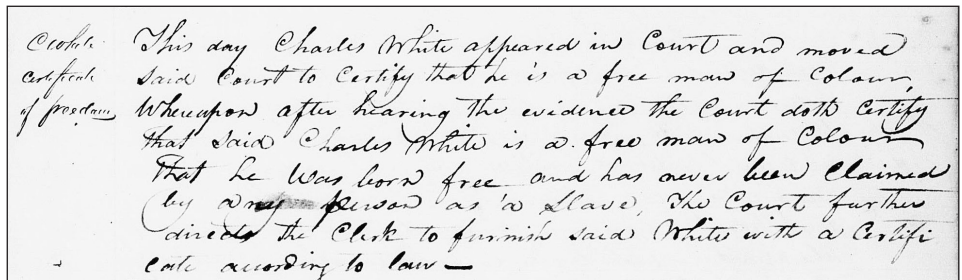 C White
certificate
of freedom
This day Charles White appeared in Court and moved
said Court to Certify that he is a free man of Colour,
Whereupon after hearing the evidence the Court doth Certify
that said Charles White is a free man of Colour
That he was born free and has never been Claimed
by any person as a Slave, The Court further
directs the Clerk to furnish said White with a Certifi
cate according to law —